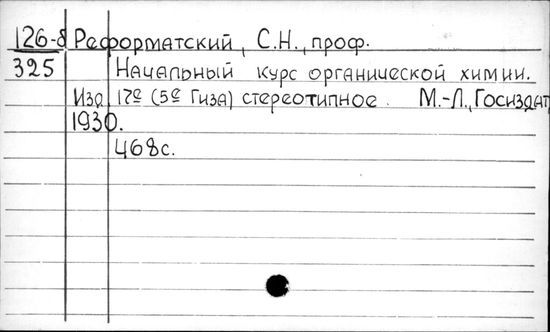 126-б Реформатский, С.Н., проф.
325 Начальный курс органической химии.
Изд. 17е (5е Гиза) стереотипное. М.-Л., Госиздат,
1930.
468с.